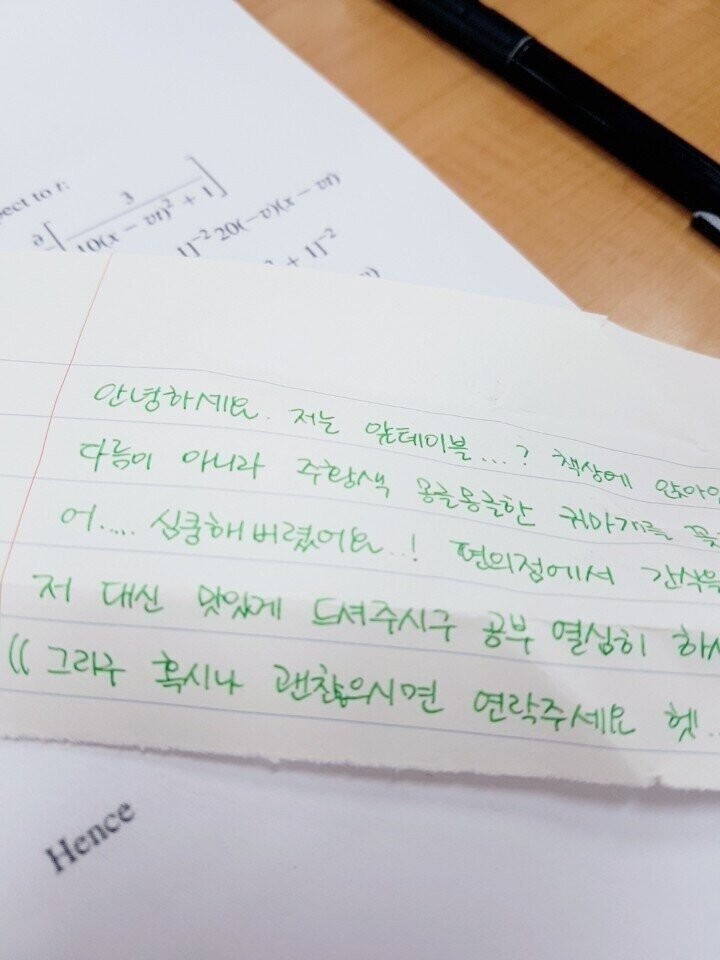 pect to t:
∂ [ 3
10(x − vt)² + 1 ]
1]⁻² 20(−v)(x − vt)
+ 1]⁻²
안녕하세요. 저는 앞테이블...? 책상에 앉아
다름이 아니라 주황색 몽글몽글한 귀마개를 꽂
어..... 심쿵해버렸어요..! 편의점에서 간식
저 대신 맛있게 드셔주시구 공부 열심히 하시
(( 그라구 혹시나 괜찮으시면 연락주세요 헷..
Hence